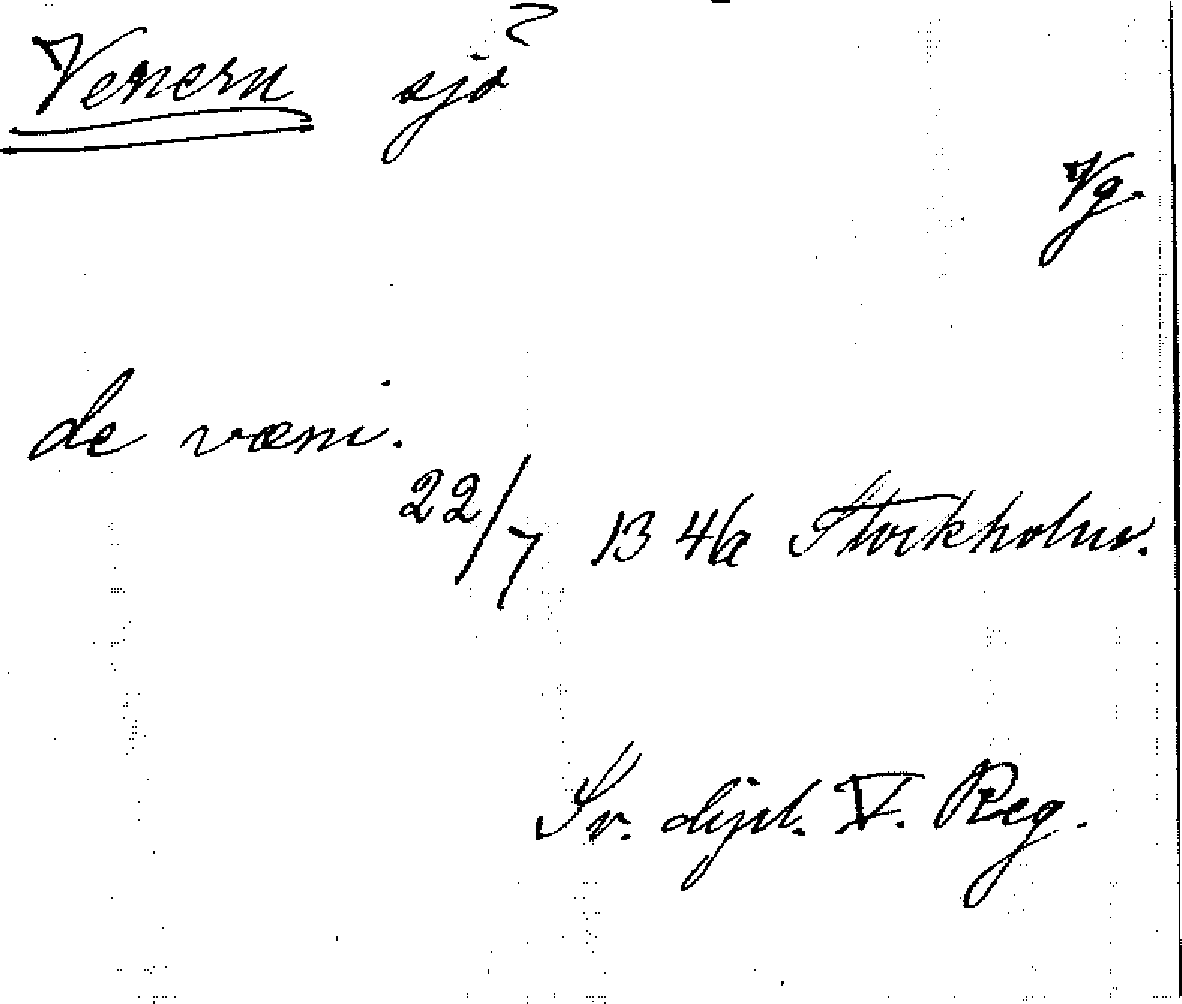 Venern sjö
Vg.
de væni.
22/7 1346 Stockholm.
Sv. dipl. V. Reg.